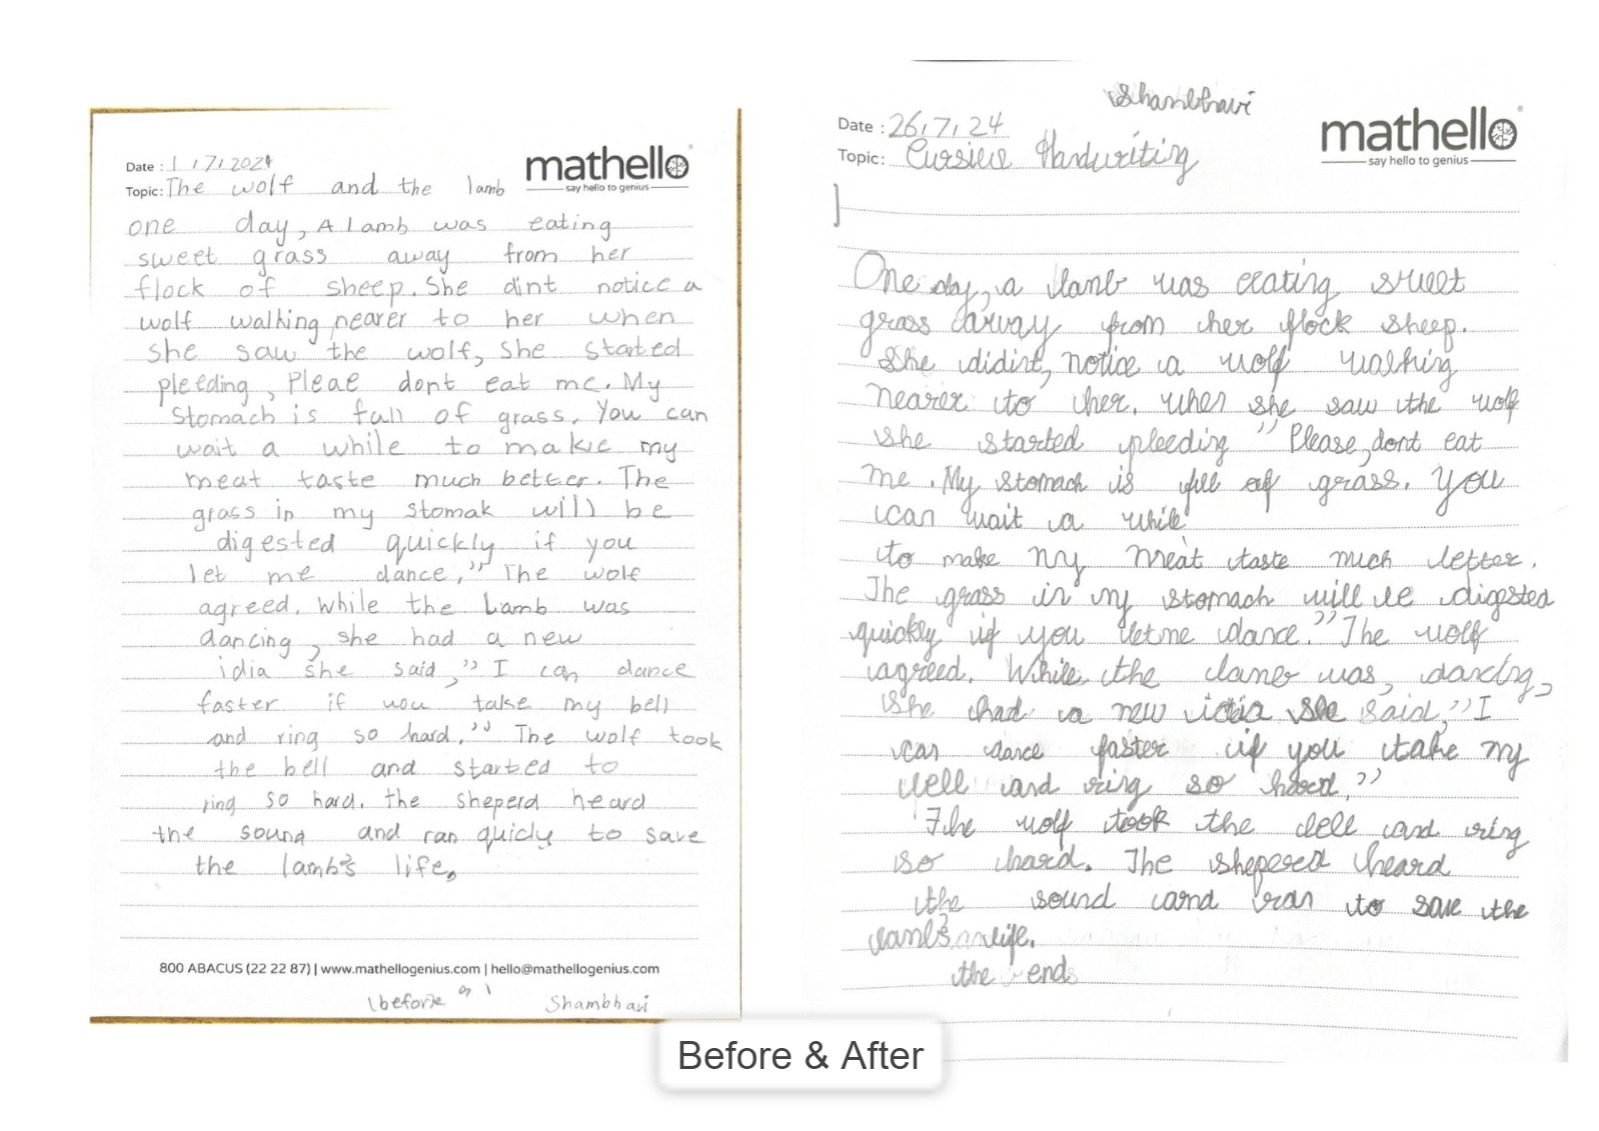 Date : 1 / 7 / 2024
mathello
say hello to genius
Topic: The wolf and the lamb
one day, A lamb was eating
sweet grass away from her
flock of sheep. She dint notice a
wolf walking nearer to her when
she saw the wolf, She started
pleeding, Pleae dont eat me. My
Stomach is full of grass. You can
wait a while to make my
meat taste much better. The
grass in my stomak will be
digested quickly if you
let me dance," The wolf
agreed. While the Lamb was
dancing, she had a new
idia she said," I can dance
faster if you take my bell
and ring so hard." The wolf took
the bell and started to
ring so hard. the sheperd heard
the sound and ran quicly to save
the lamb's life.
800 ABACUS (22 22 87) | www.mathellogenius.com | hello@mathellogenius.com
before
Shambhavi
Shambhavi
Date : 26/7/24
mathello
say hello to genius
Topic: Cursive Handwriting
One day, a lamb was eating sweet
grass away from her flock sheep.
She didint, notice a wolf walking
nearer to her. When she saw the wolf
she started pleeding "Please, dont eat
me. My stomach is full of grass. You
can wait a while
to make my meat taste much better.
The grass in my stomach will be digested
quickly if you let me dance." The wolf
agreed. While the lamb was, dancing,
She had a new idia she said," I
can dance faster if you take my
bell and ring so hard."
The wolf took the bell and ring
so hard. The sheperd heard
the sound and ran to save the
lamb's life.
the end
Before & After